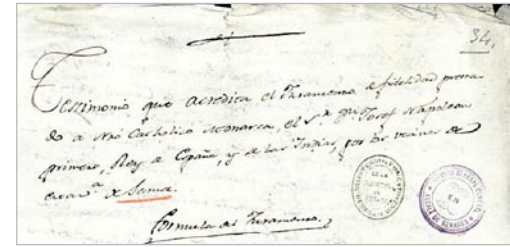 34,
Testimonio que acredita el Juramento de fidelidad presta-
do a Nro Catholico Monarca, el Sr. Dn Josef Napoleon
primero, Rey de España, y de las Indias, por los vecinos de
esta va. de Senna.
Formula del Juramento,